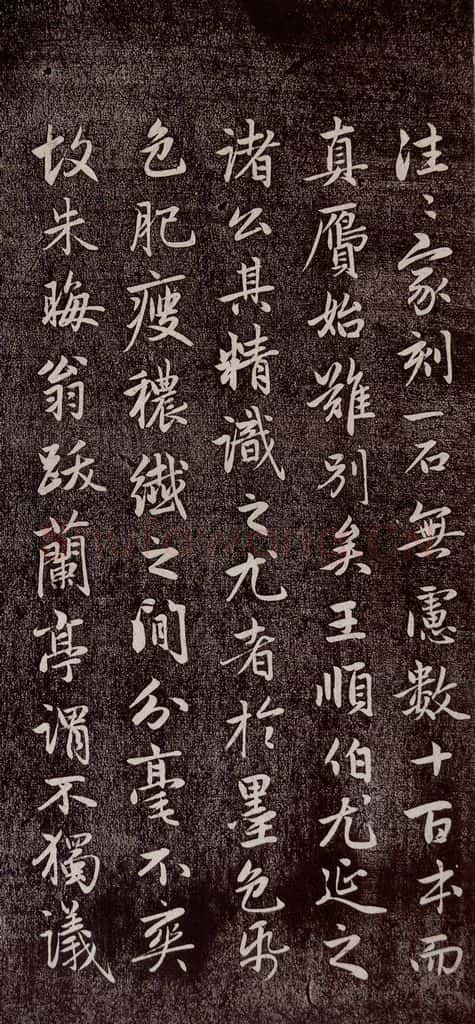 往〻家刻一石無慮數十百本而
真贋始難別矣王順伯尤延之
諸公其精識之尤者於墨色帋
色肥瘦穠纖之間分毫不爽
故朱晦翁跋蘭亭謂不獨議